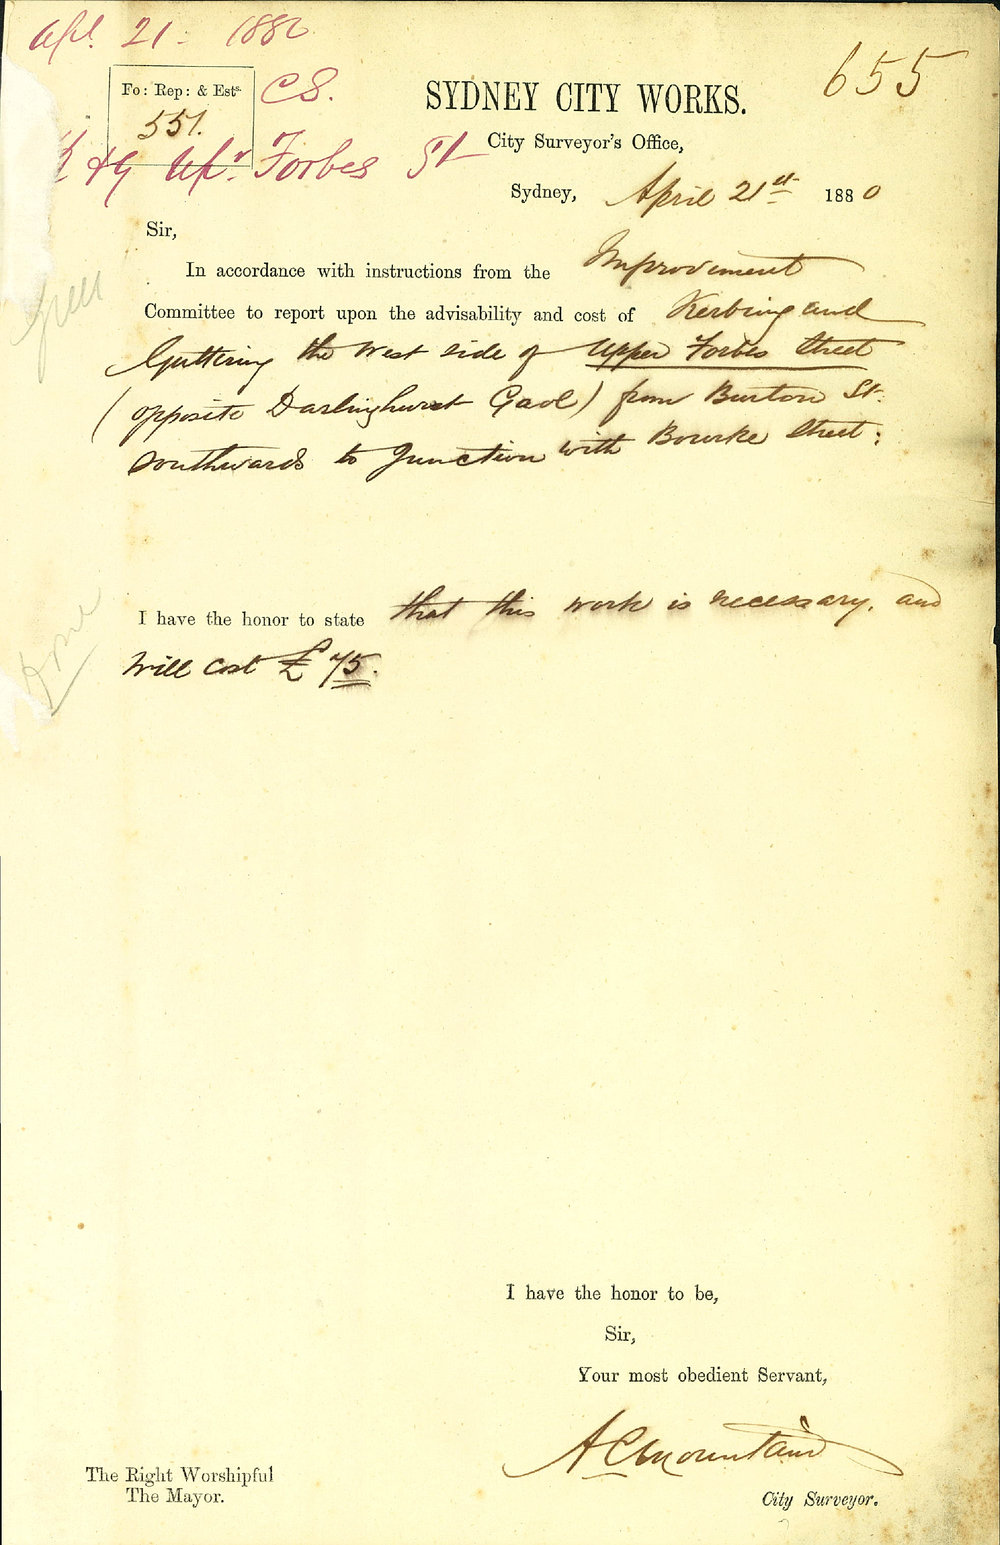 Apl. 21. 1880
655
Fo: Rep: & Ests.
551.
CS.
SYDNEY CITY WORKS.
City Surveyor's Office,
K & G Upr. Forbes St
Sydney, April 21st 1880
Sir,
In accordance with instructions from the Improvement
Committee to report upon the advisability and cost of Kerbing and
Guttering the West side of Upper Forbes Street
(opposite Darlinghurst Gaol) from Burton St.
Southwards to Junction with Bourke Street;
I have the honor to state that this work is necessary, and
will cost £75.
Done
I have the honor to be,
Sir,
Your most obedient Servant,
A C Mountain
The Right Worshipful
The Mayor.
City Surveyor.